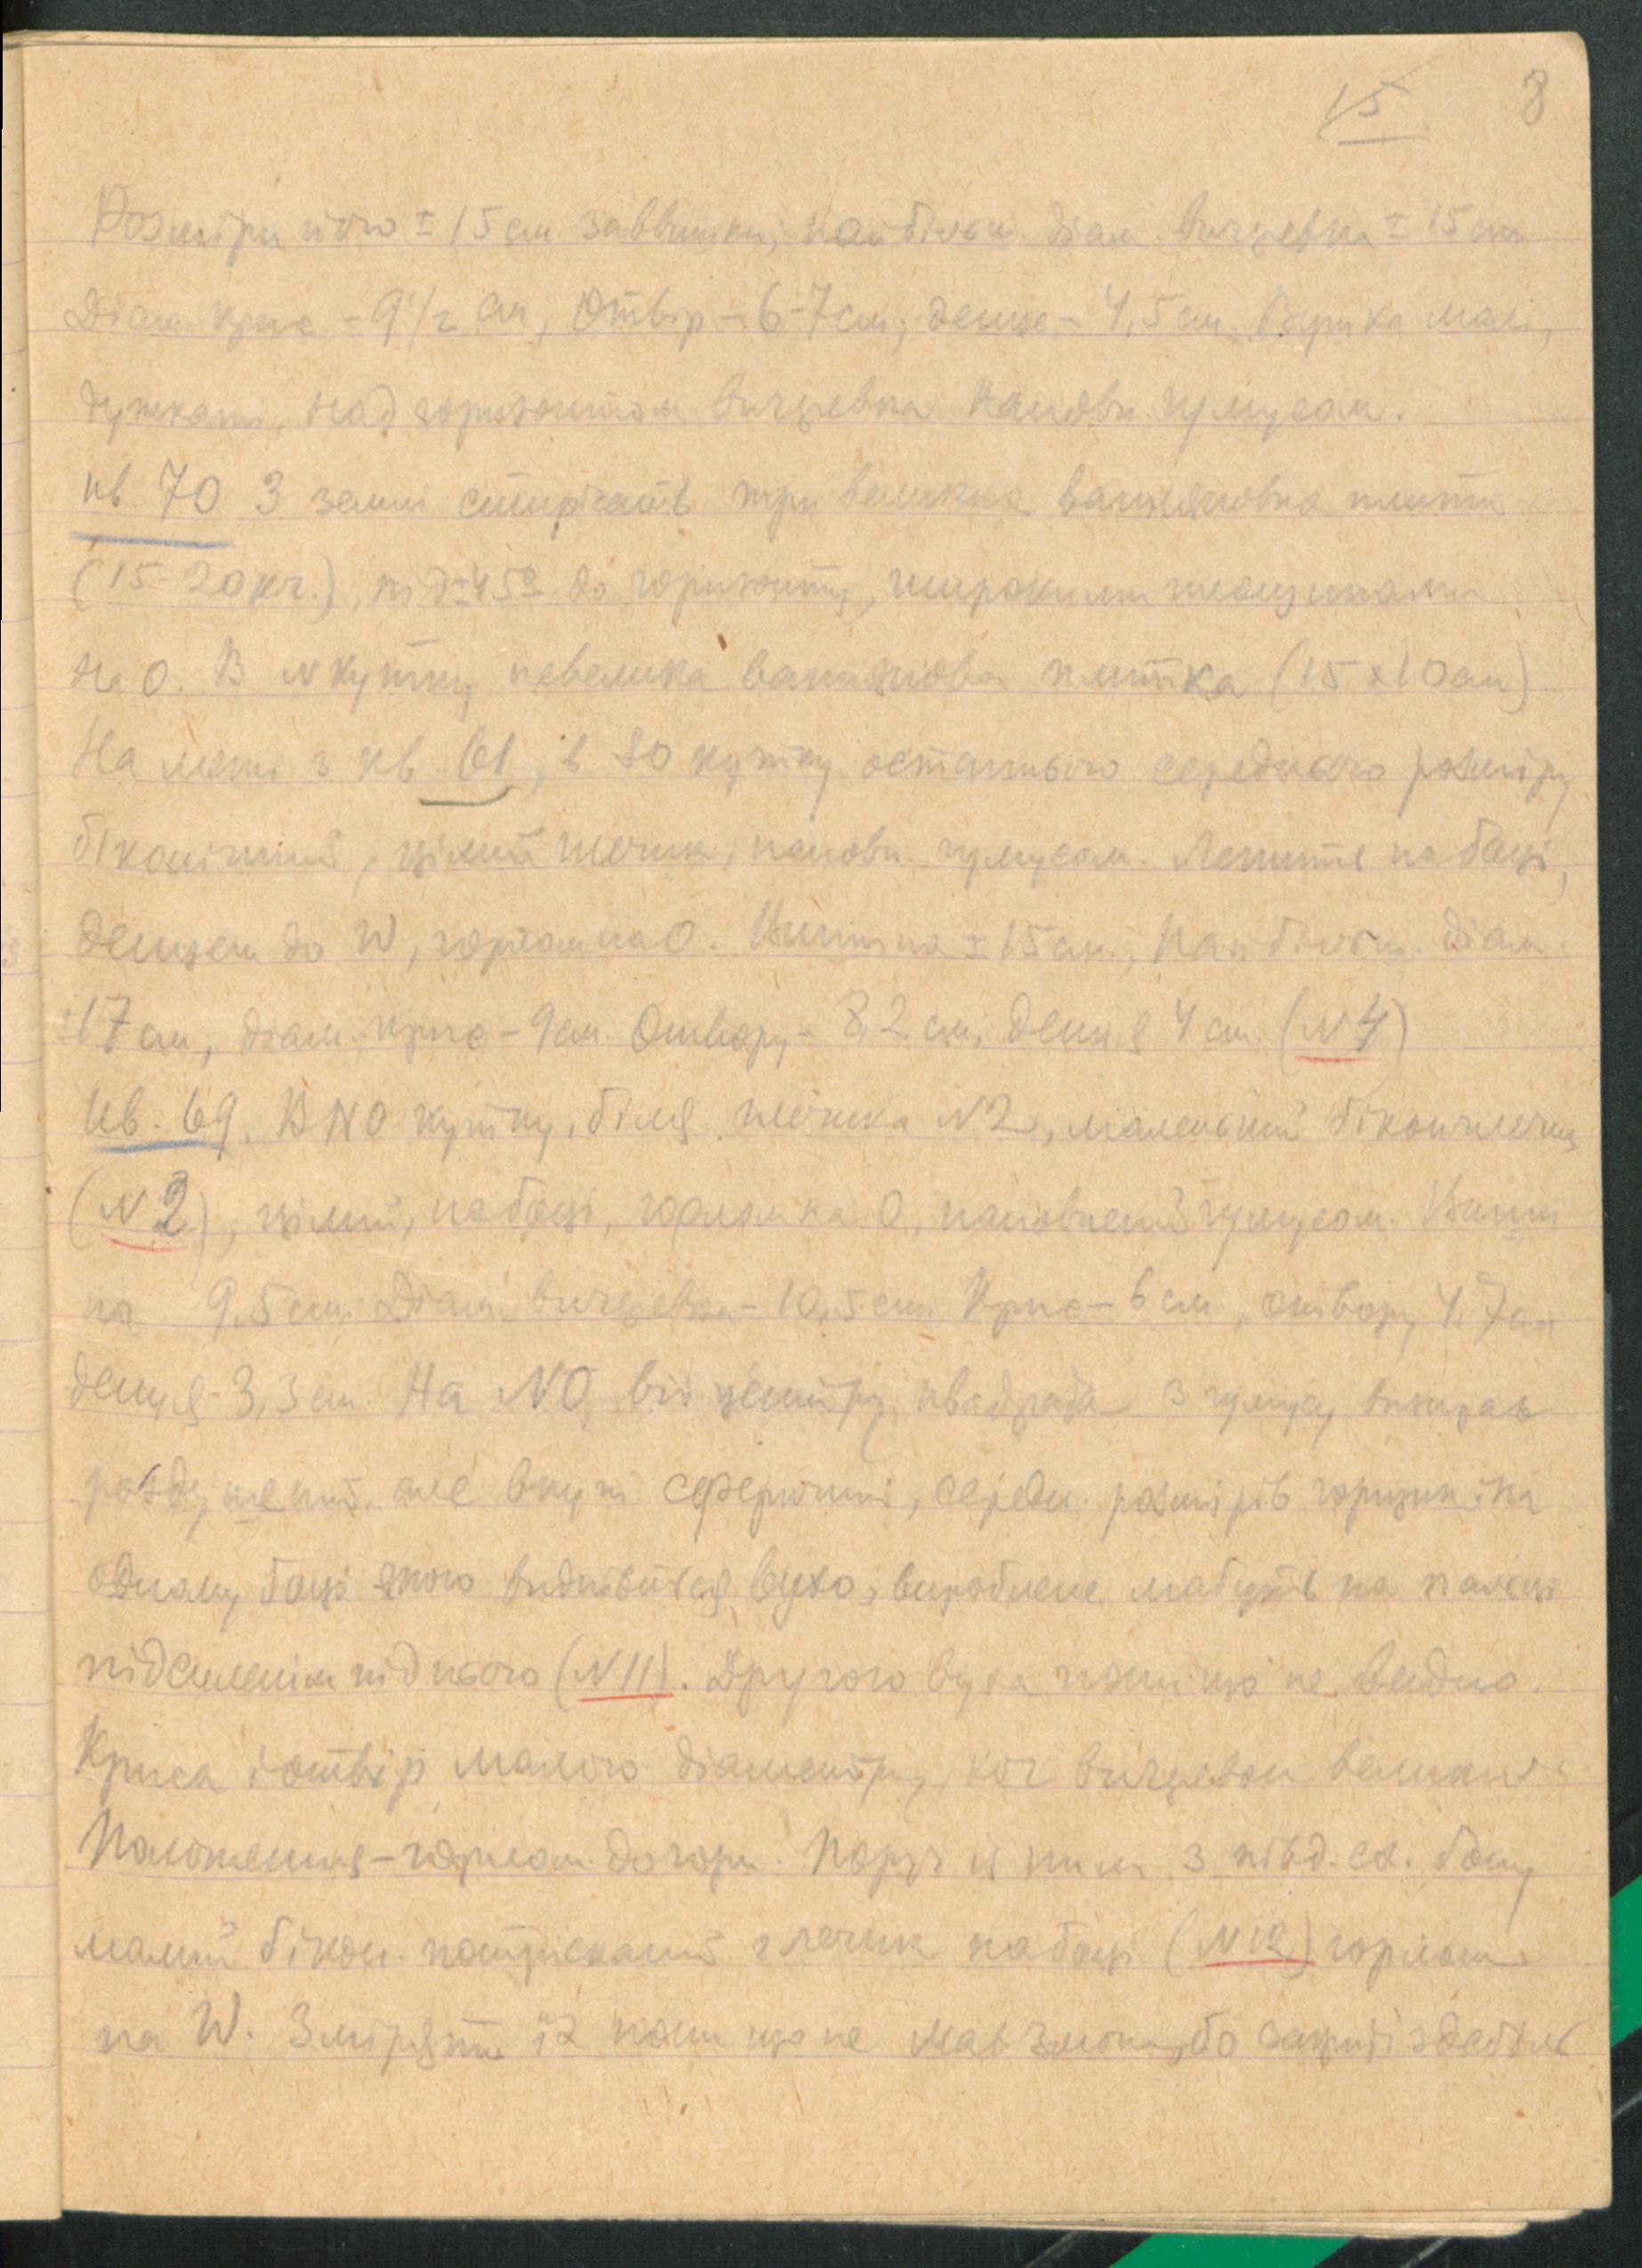 15 8
Розміри його ± 15 см заввишки, найбільш. діам. вичеревка ± 15 см
Діам. крис - 9 1/2 см, Отвір - 6-7 см, денце - 4,5 см. Вушка малі,
дужками, над горизонтом вичеревка. Наповн. гумусом.
кв. 70 З землі стирчать три великих вапнякових плити
(15-20 кг.), під ± 45° до горизонту, широкими площинами
на О. В N кутку невелика вапнякова плитка (15 x 10 см)
На межі з кв. 61, в SO кутку останнього середнього розміру
біконічний, цілий глечик, наповн. гумусом. Лежить на боці,
денцем до W, горлом на О. Вишина ± 15 см., Найбільш. діам.
± 17 см, діам. крис - 9 см. Отвору - 8,2 см, денця 4 см. (N 4)
Кв. 69. В NO кутку, біля глечика N 2, маленький бікон. глечик
(N 2), цілий, на боці, горлом на О, наповнений гумусом. Виши
на 9,5 см. Діам. вичеревка - 10,5 см. Крис - 6 см, отвору 4,7 см
денця - 3,3 см. На NO від центру квадрата з гумусу визирав
але вкупі сферичний, середн. розмірів горщик, на
одному боці якого видніється вухо, вироблене мабуть на
під нього (N 11). Другого вуха поки що не видно.
Криса і отвір малого діаметру, хоч вичеревок великий.
Положення - горлом догори. Поруч із ним з півд. сх. боку
малий бікон. потрісканий глечик на боці (N 12) горлом
на W. Зміряти їх поки що не мав змоги, бо закриті здебіль